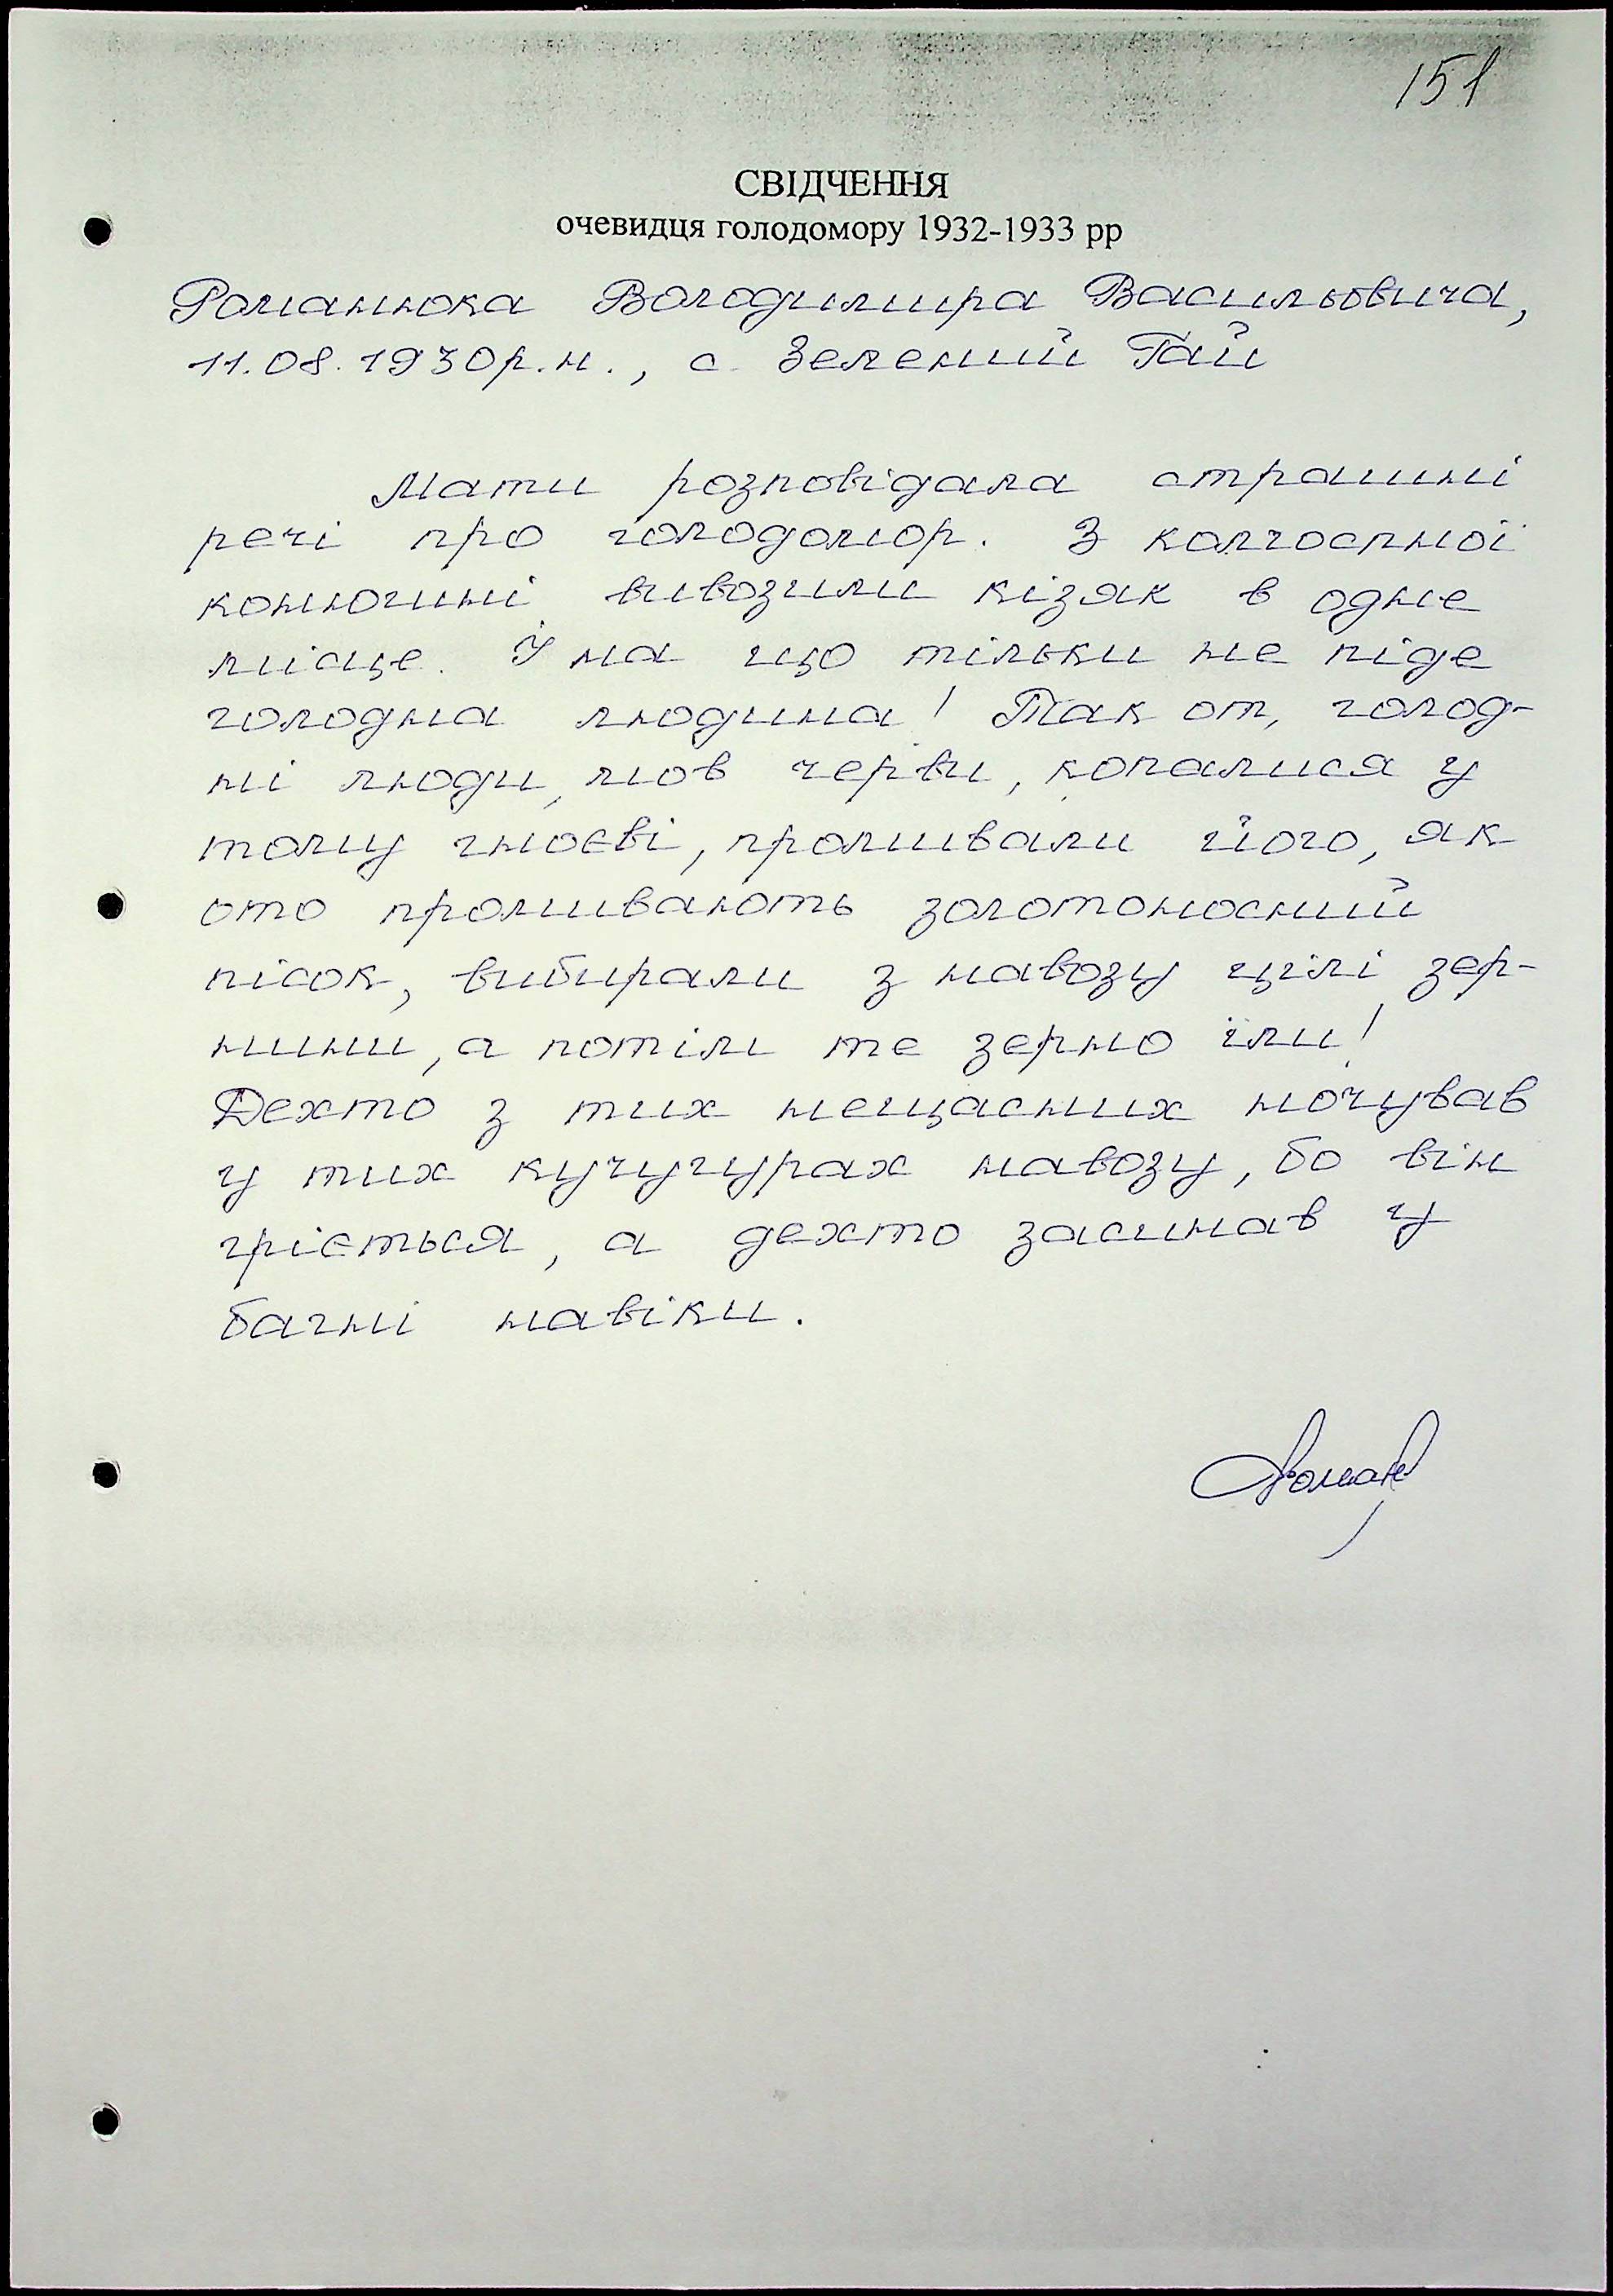 151
СВІДЧЕННЯ
очевидця голодомору 1932-1933 рр
Романюка Володимира Васильовича,
11.08.1930р.н., с. Зелений Гай
Мати розповідала страшні
речі про голодомор. З колгоспної
конюшні вивозили кізяк в одне
місце. І на що тільки не піде
голодна людина! Так от, голод-
ні люди, мов черви, копалися у
тому гноєві, промивали його, як
ото промивають золотоносний
пісок, вибирали з навозу цілі зер-
нини, а потім те зерно їли!
Дехто з тих нещасних ночував
у тих кучугурах навозу, бо він
гріється, а дехто засинав у
багні навіки.